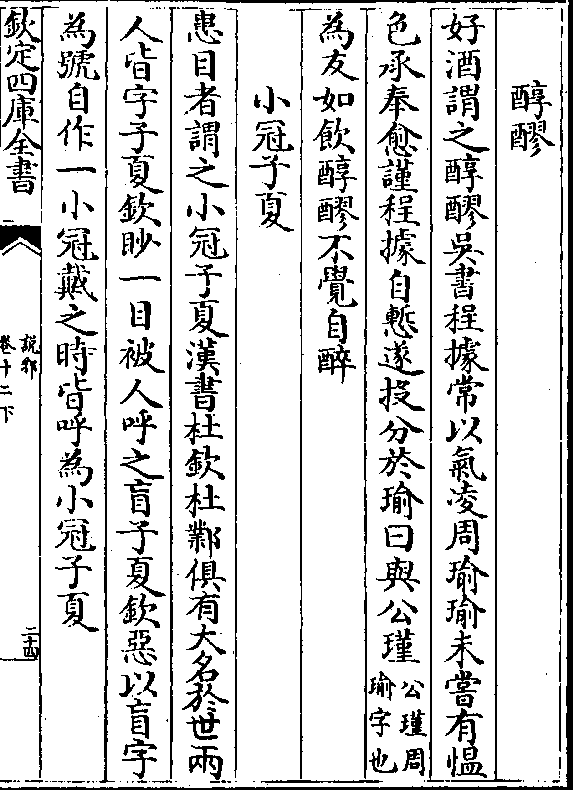 醇醪
好酒謂之醇醪吳書程據常以氣凌周瑜瑜未嘗有愠
色承奉愈謹程據自慙遂投分於瑜曰與公瑾公瑾周瑜字也
為友如飲醇醪不覺自醉
小冠子夏
患目者謂之小冠子夏漢書杜欽杜鄴俱有大名於世兩
人皆字子夏欽眇一目被人呼之盲子夏欽惡以盲字
為號自作一小冠戴之時皆呼為小冠子夏
欽定四庫全書
說郛
卷十二下
二十四